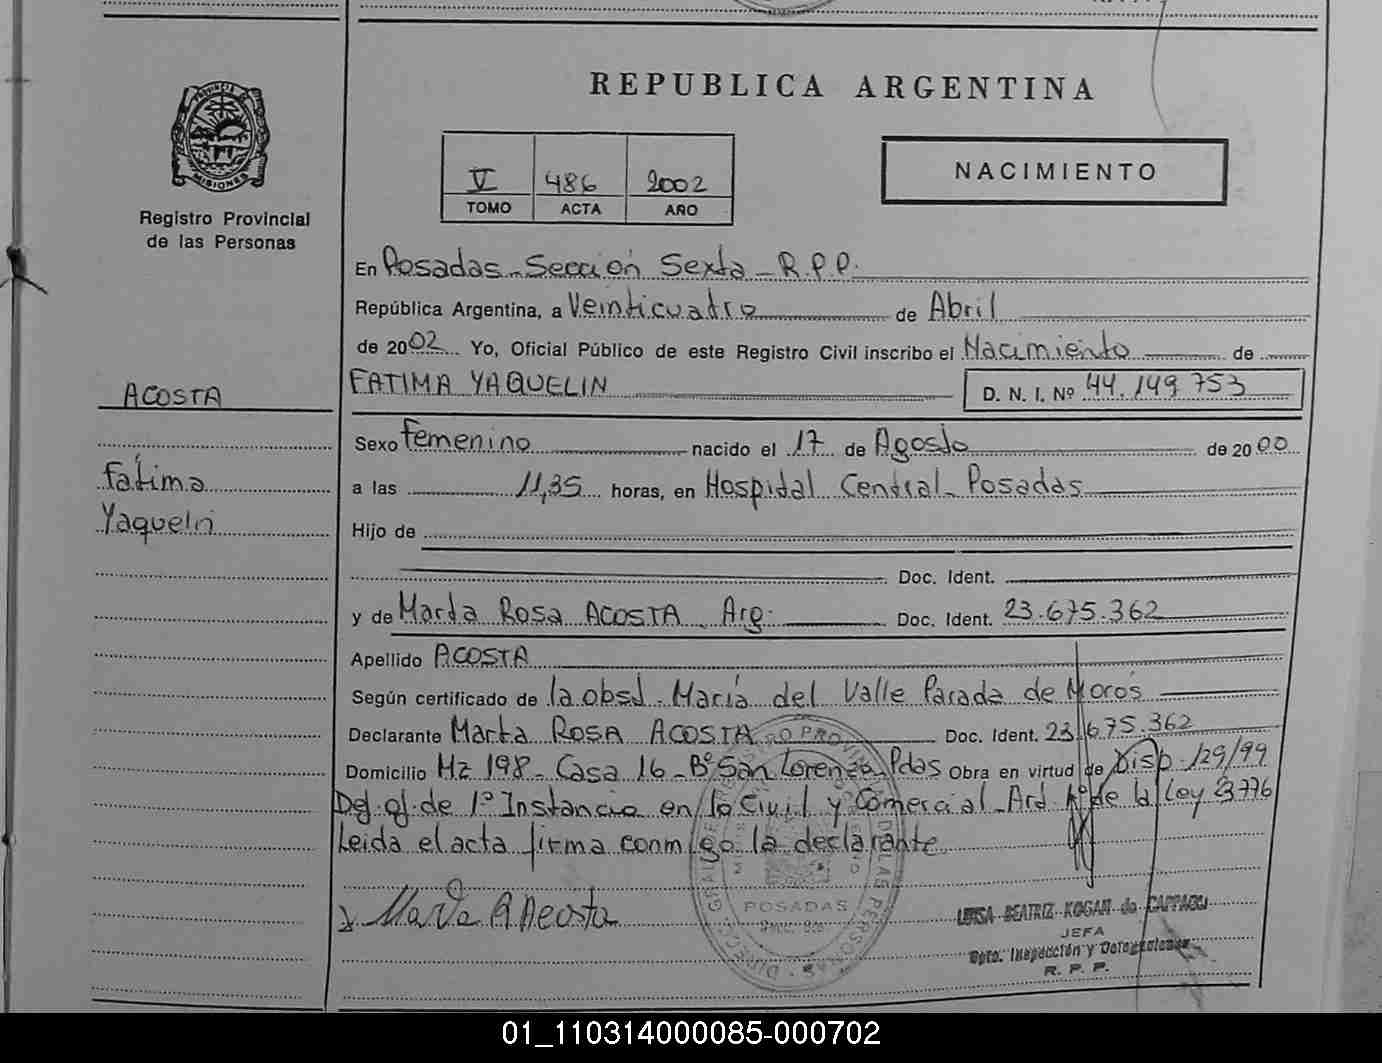 REPUBLICA ARGENTINA
PROVINCIA DE MISIONES
Registro Provincial
de las Personas
V 486 2002
TOMO ACTA AÑO
NACIMIENTO
En Posadas - Sección Sexta - R.P.P.
República Argentina, a Veinticuatro de Abril
de 2002 Yo, Oficial Público de este Registro Civil inscribo el Nacimiento de
FATIMA YAQUELIN D. N. I. Nº 44.149.753
ACOSTA
Fátima
Yaquelin
Sexo Femenino nacido el 17 de Agosto de 2000
a las 11,35 horas, en Hospital Central - Posadas
Hijo de
Doc. Ident.
y de Marta Rosa ACOSTA. Arg. Doc. Ident. 23.675.362
Apellido ACOSTA
Según certificado de la obst. María del Valle Parada de Moros
Declarante Marta ROSA ACOSTA Doc. Ident. 23.675.362
Domicilio Mz 198 - Casa 16 - Bº San Lorenzo - Pdas Obra en virtud de Disp. 129/99
de 1º Instancia en lo Civil y Comercial - Art. de la Ley 3776
Leida el acta firma conmigo la declarante
Marta R Acosta
POSADAS
LUISA BEATRIZ KOGAN de
JEFA
Dpto. Inspección y
R. P. P.
01_110314000085-000702